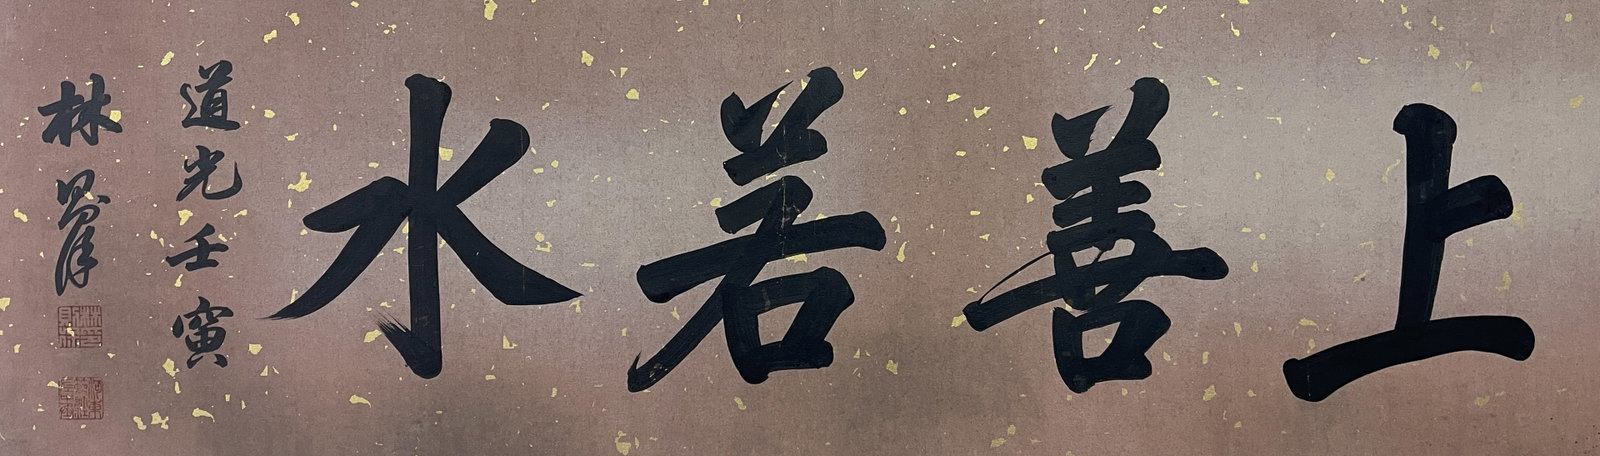 上善若水
道光壬寅
林則徐